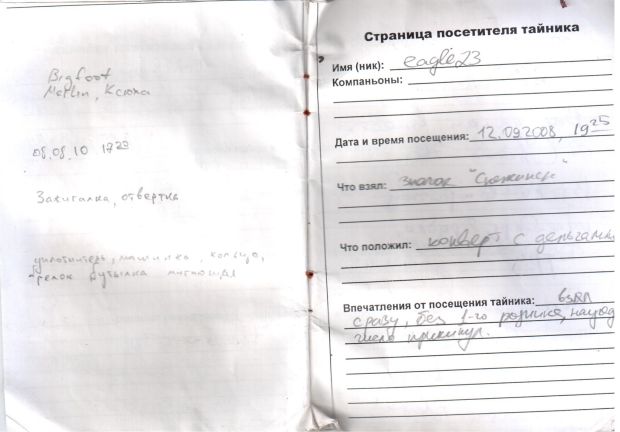 Bigfoot
Merlin, Ксюха
08.08.10 17
Зажигалка, отвертка
уплотнитель, машинка, кольцо,
брелок бутылка
Страница посетителя тайника
Имя (ник): eagle23
Компаньоны:
Дата и время посещения: 12.09.2008, 19 25
Что взял: значок "Снежинск"
Что положил: конверт с деньгами
Впечатления от посещения тайника: взял
сразу, без 1-го родника, наугад
число прикинул.